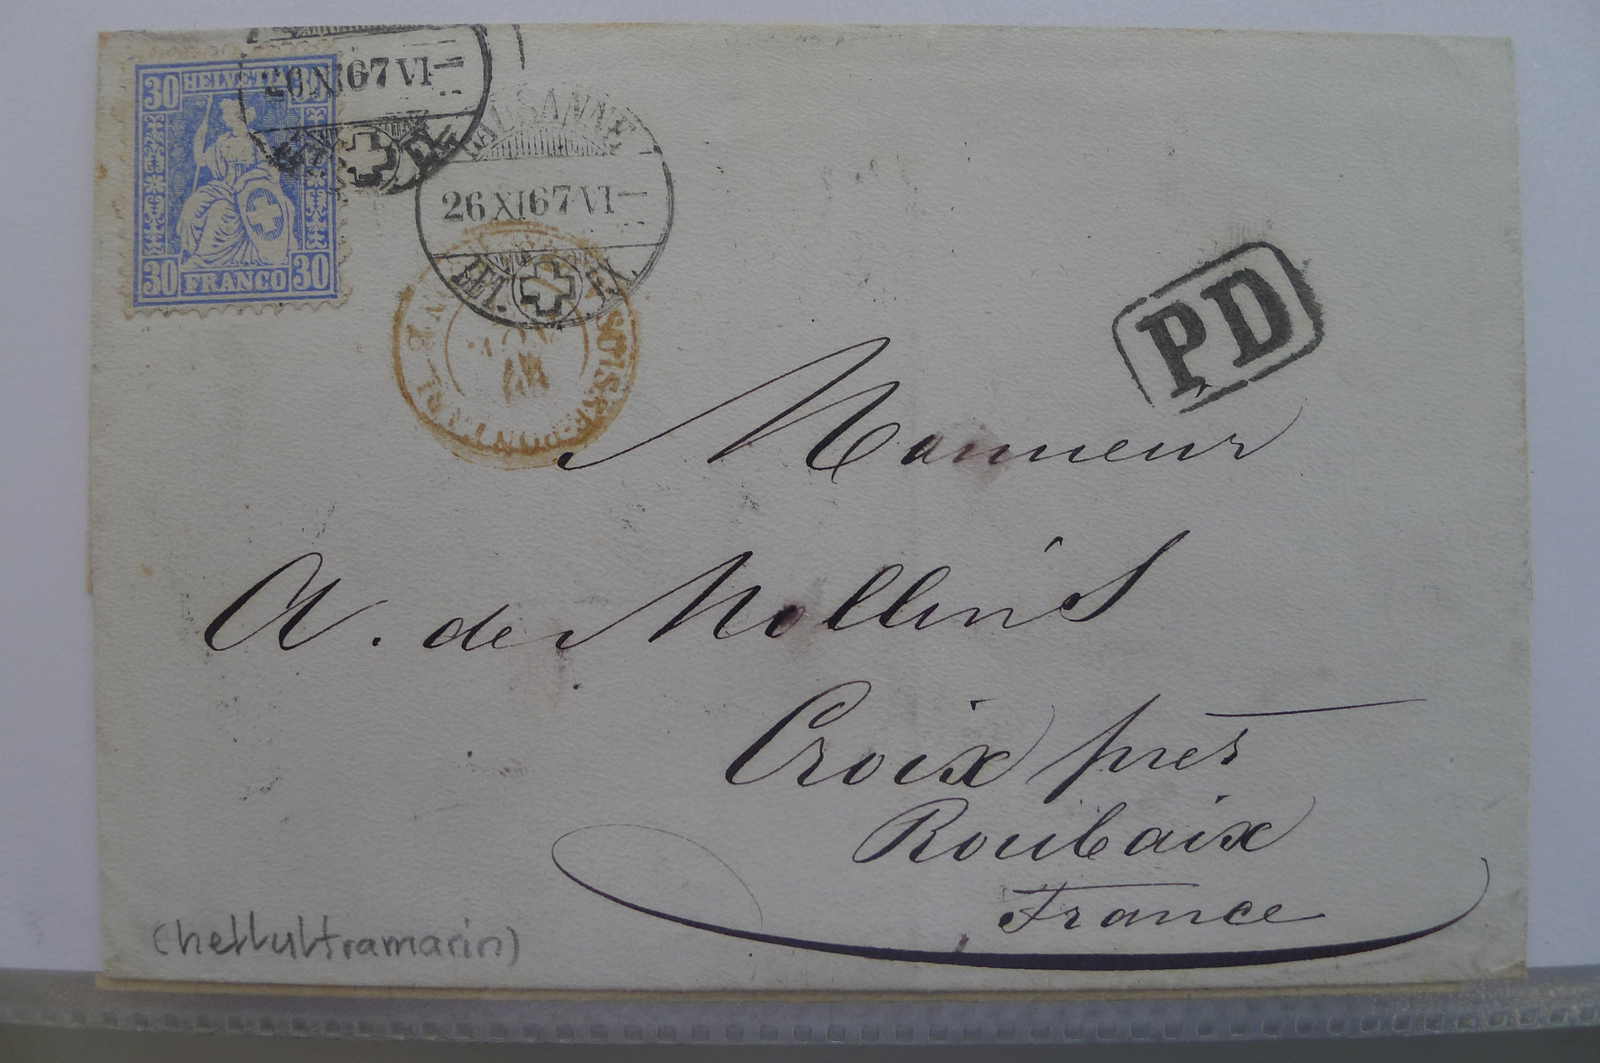 30 HELVETIA 30
26 XI 67 VI—
LAUSANNE
26 XI 67 VI—
30 FRANCO 30
PD
Monsieur
A. de Mollins
Croix près
Roubaix
France
(hellultramarin)